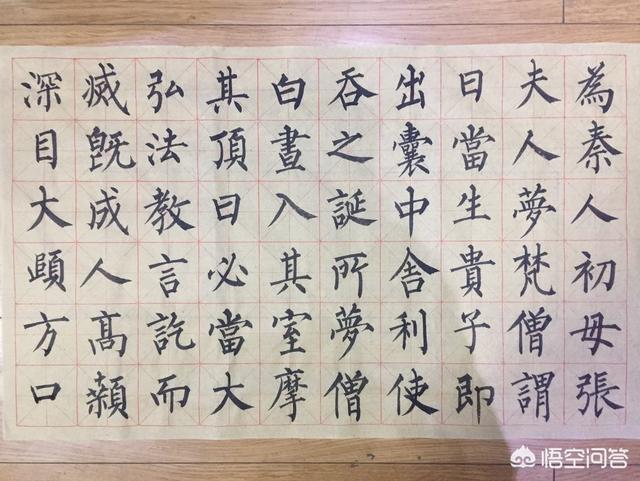 為秦人初母張
夫人夢梵僧謂
日當生貴子即
出囊中舍利使
吞之誕所夢僧
白晝入其室摩
其頂曰必當大
弘法教言訖而
滅既成人高顙
深目大頤方口
悟空问答